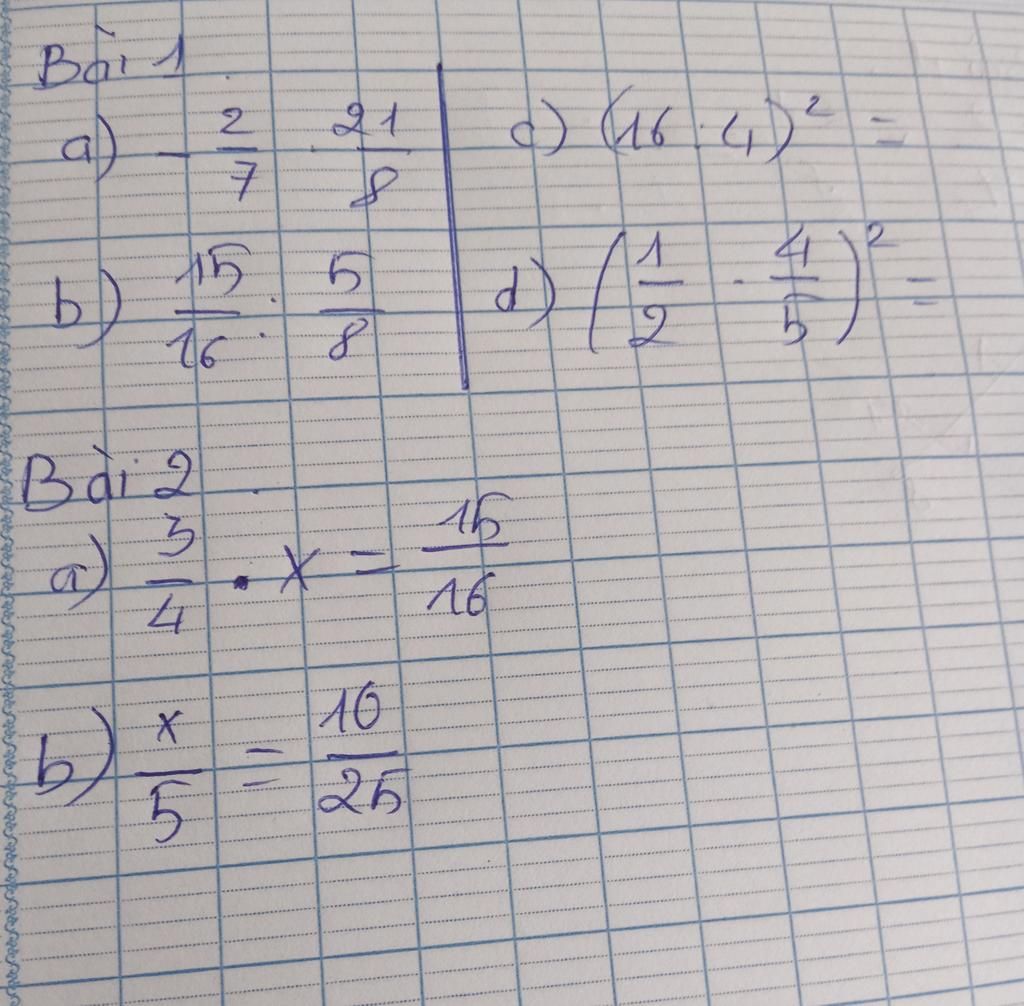 Bài 1
a) - 2/7 . 21/8
b) 15/16 : 5/8
c) (16 . 4)² =
d) (1/2 . 4/5)² =
Bài 2
a) 3/4 . x = 15/16
b) x/5 = 10/25